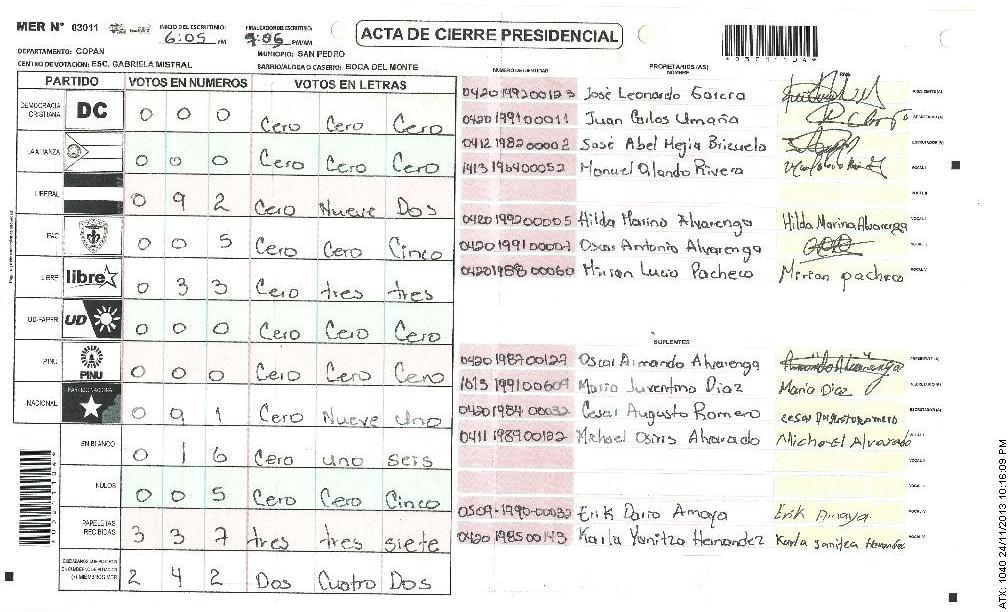 MER N° 03011 INICIO DEL ESCRUTINIO: 6:05 PM FINALIZACION DEL ESCRUTINIO: 9:05 PM/AM
ACTA DE CIERRE PRESIDENCIAL
DEPARTAMENTO: COPAN MUNICIPIO: SAN PEDRO
CENTRO DE VOTACION: ESC. GABRIELA MISTRAL BARRIO/ALDEA O CASERIO: BOCA DEL MONTE
PARTIDO VOTOS EN NUMEROS VOTOS EN LETRAS
DEMOCRACIA CRISTIANA DC 0 0 0 Cero Cero Cero
LA ALIANZA 0 0 0 Cero Cero Cero
LIBERAL 0 9 2 Cero Nueve Dos
FAC 0 0 5 Cero Cero Cinco
LIBRE libre 0 3 3 Cero tres tres
UD-FAPER UD 0 0 0 Cero Cero Cero
PINU PINU 0 0 0 Cero Cero Cero
NACIONAL 0 9 1 Cero Nueve Uno
EN BLANCO 0 1 6 Cero uno seis
NULOS 0 0 5 Cero Cero Cinco
PAPELETAS RECIBIDAS 3 3 7 tres tres siete
(+) MIEMBROS MER 2 4 2 Dos Cuatro Dos
NUMERO DE IDENTIDAD PROPIETARIOS (AS) NOMBRE FIRMA
0420199200123 José Leonardo Garcia PRESIDENTE (A)
0420199100011 Juan Carlos Umaña SECRETARIO (A)
0412198200002 José Abel Mejia Brizuela ESCRUTADOR (A)
1413196400052 Manuel Orlando Rivera VOCAL I
VOCAL II
0420199200005 Hilda Marina Alvarenga Hilda Marina Alvarenga
Oscar Antonio Alvarenga
0420198800060 Mirian Lucia Pacheco Mirian pacheco VOCAL V
SUPLENTES
0420198700127 Oscar Armando Alvarenga PRESIDENTE (A)
1613199100609 Maria Juventina Diaz Maria Diaz SECRETARIO (A)
0420198400032 Cesar Augusto Romero cesar Augusto romero ESCRUTADOR (A)
0411198900182 Michael Osiris Alvarado Michael Alvarado VOCAL I
VOCAL II
0509-1990-00032 Erik Dario Amaya Erik Amaya VOCAL IV
0420198500143 Karla Yanitza Hernandez Karla Yanitza Hernandez VOCAL V
ATX: 1040 24/11/2013 10:16:09 PM